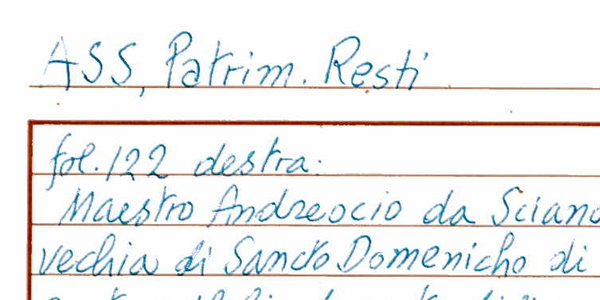 ASS, Patrim. Resti
fol. 122 destra:
Maestro Andreocio da
vechia di Sancto Domenicho di